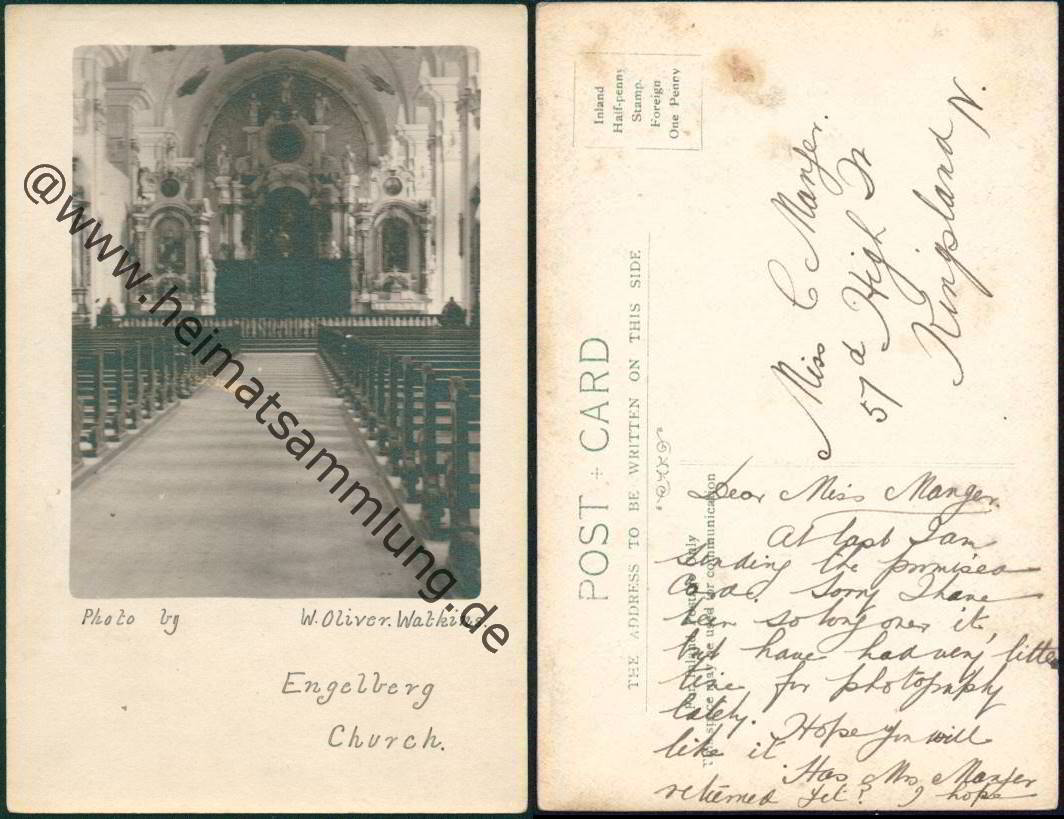 @www.heimatsammlung.de
Photo by W. Oliver. Watkins.
Engelberg
Church.
Inland
Half-penny
Stamp.
Foreign
One Penny
POST CARD
THE ADDRESS TO BE WRITTEN ON THIS SIDE
Miss C Manger.
57d High St
Kingsland N.
only
space may be used for communication
Dear Miss Manger
At last I am
sending the promised
Card. Sorry I have
been so long over it,
but have had very little
time for photography
lately. Hope you will
like it
Has Mrs Manger
returned yet? I hope